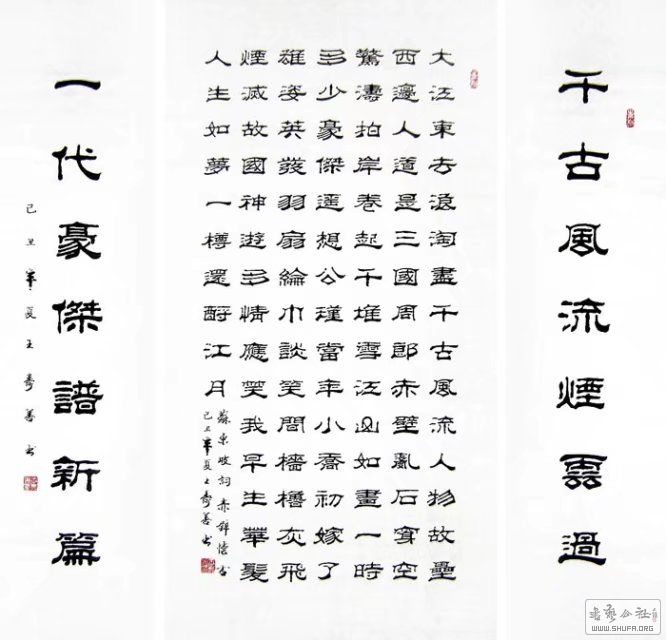 千古風流煙雲過
大江東去浪淘盡千古風流人物故壘
西邊人道是三國周郎赤壁亂石穿空
驚濤拍岸卷起千堆雪江山如畫一時
多少豪傑遥想公瑾當年小喬初嫁了
雄姿英發羽扇綸巾談笑間檣櫓灰飛
煙滅故國神遊多情應笑我早生華髮
人生如夢一樽還酹江月
蘇東坡詞赤壁懷古
己丑年夏王壽善书
一代豪傑譜新篇
己丑年夏王壽善书
書藝公社
WWW.SHUFA.ORG